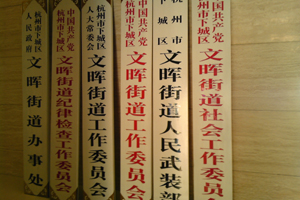 杭州市下城区
人民政府
文晖街道办事处
中国共产党
杭州市下城区
文晖街道纪律检查工作委员会
杭州市下城区
人大常委会
文晖街道工作委员会
中国共产党
杭州市下城区
文晖街道工作委员会
杭州市
下城区
文晖街道人民武装部
中国共产党
杭州市下城区
文晖街道社会工作委员会